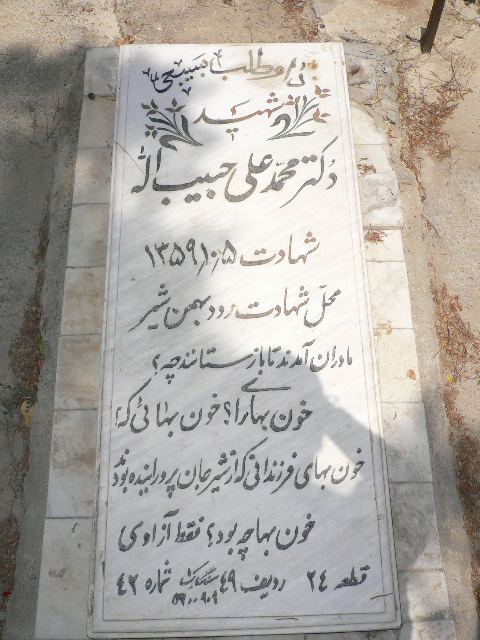 شهید
دکتر محمد علی حبیب الله
شهادت ۱۳۵۹٫۱۰٫۵
محل شهادت رود بهمن شیر
مادران آمدند تا باز ستانند چه؟
خون بها را؟ خون بهائی که؟
خون بهای فرزندانی که از شیر جان پرورانیده بودند
خون بها چه بود؟ فقط آزادی
قطعه ۲۴ ردیف ۴۹ شماره ۴۲